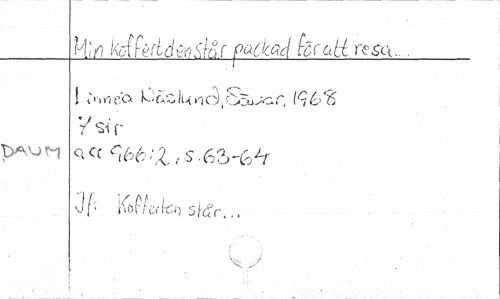 Min koffert den står packad för att resa...
Linnéa Näslund, Sävar, 1968
7 str
DAUM acc 966:2, s. 63-64
Jf: Kofferten står...